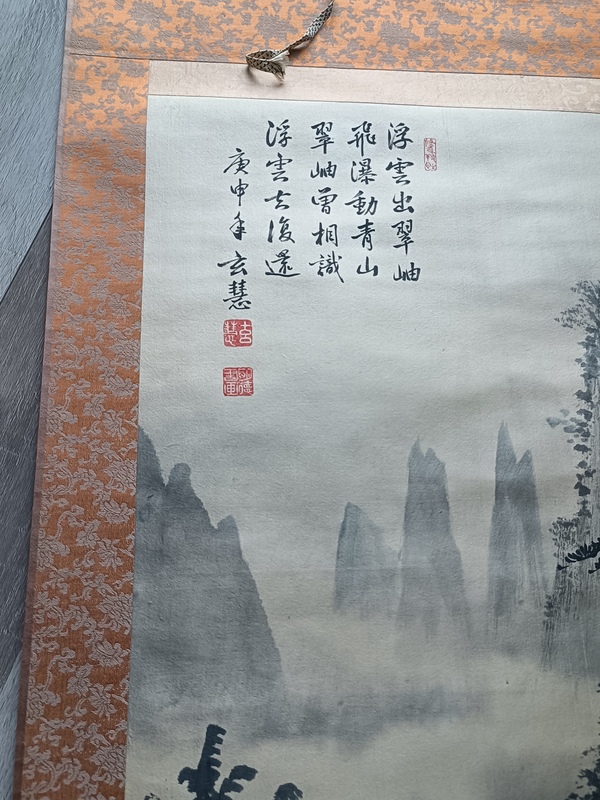 浮雲出翠岫
飛瀑動青山
翠岫曾相識
浮雲去復還
庚申年 玄慧
玄慧